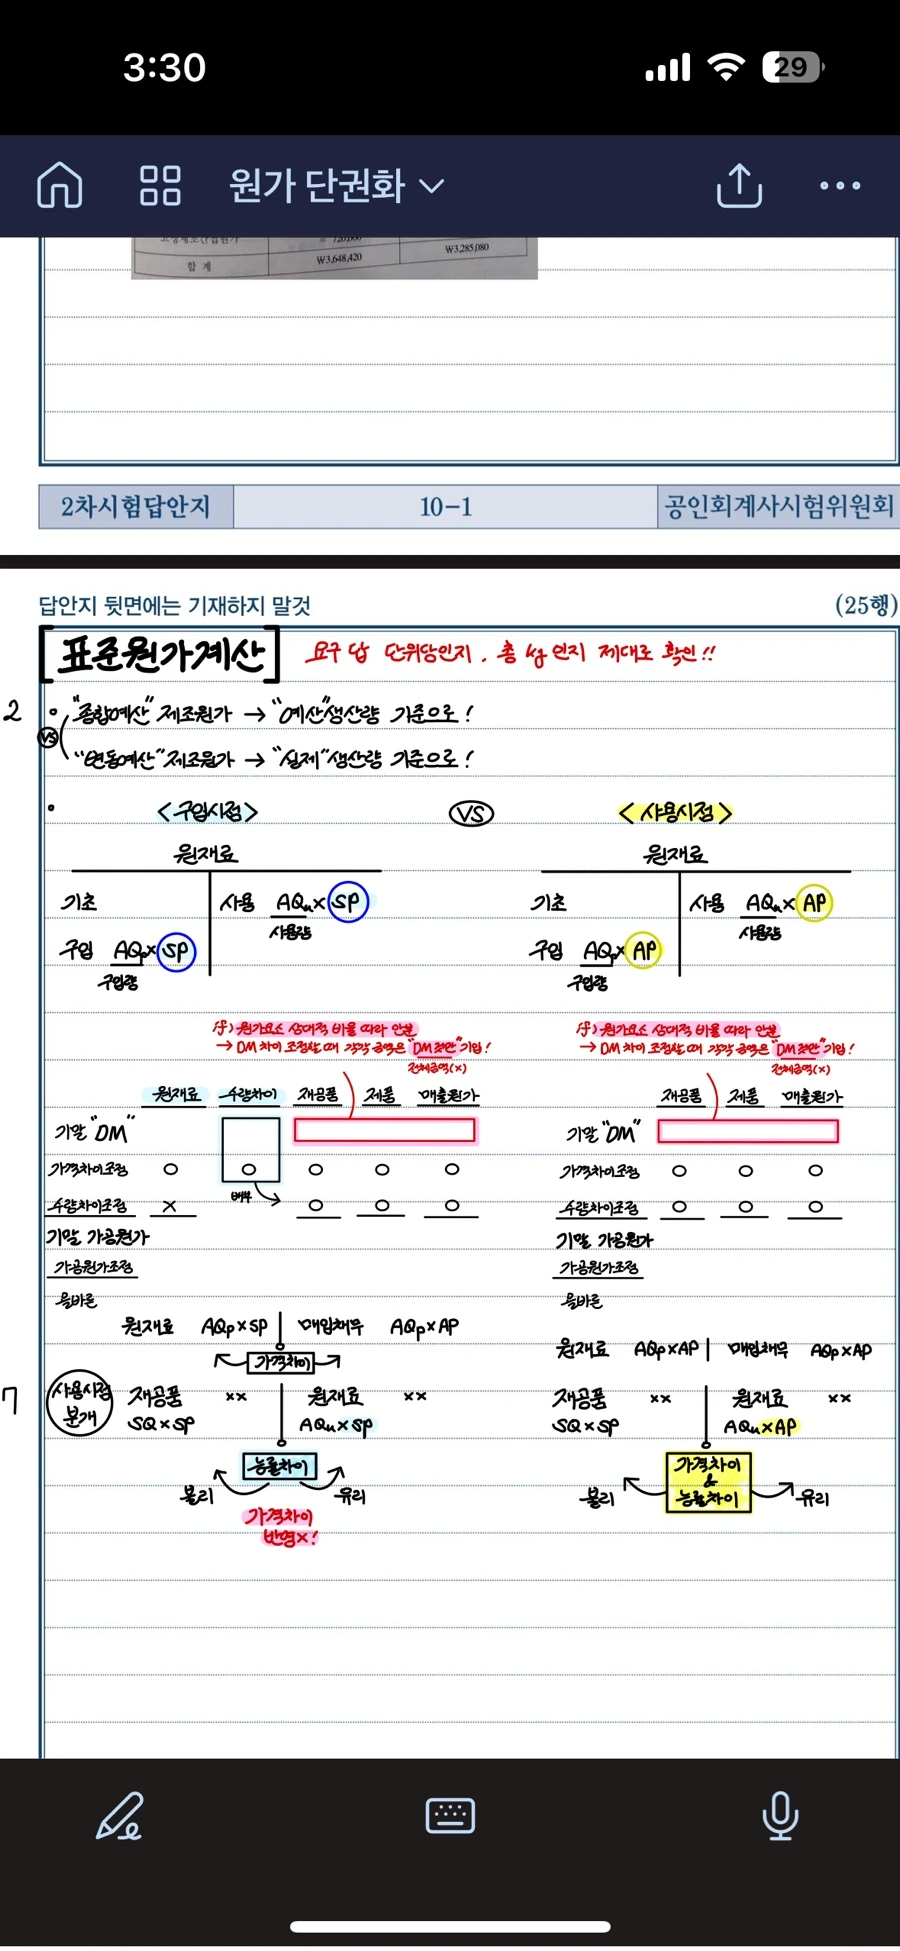 3:30
29
원가 단권화
고정제조간접원가 720,000
합 계 ₩3,648,420 ₩3,285,080
2차시험답안지 10-1 공인회계사시험위원회
답안지 뒷면에는 기재하지 말것 (25행)
[표준원가계산] 요구 답 단위당인지, 총 kg인지 제대로 확인!!
2 ∘ "종합예산" 제조원가 → "예산"생산량 기준으로!
VS
"변동예산"제조원가 → "실제"생산량 기준으로!
<구입시점> VS <사용시점>
원재료 원재료
기초 사용 AQu×SP 기초 사용 AQu×AP
사용량 사용량
구입 AQp×SP 구입 AQp×AP
구입량 구입량
유) 원가요소 상대적 비율 따라 안분 유) 원가요소 상대적 비율 따라 안분
→ DM 차이 조정할 때 각각 금액은 "DM 잔만" 기입! → DM 차이 조정할 때 각각 금액은 "DM 잔만" 기입!
전체금액(x) 전체금액(x)
원재료 수량차이 재공품 제품 매출원가 재공품 제품 매출원가
기말 "DM" 기말 "DM"
가격차이조정 ○ ○ ○ ○ ○ 가격차이조정 ○ ○ ○
배부
수량차이조정 × ○ ○ ○ 수량차이조정 ○ ○ ○
기말 가공원가 기말 가공원가
가공원가조정 가공원가조정
올바른 올바른
원재료 AQp×SP 매입채무 AQp×AP 원재료 AQp×AP 매입채무 AQp×AP
가격차이
7 사용시점 분개 재공품 ×× 원재료 ×× 재공품 ×× 원재료 ××
SQ×SP AQu×SP SQ×SP AQu×AP
능률차이 가격차이 & 능률차이
불리 유리 불리 유리
가격차이
반영×!